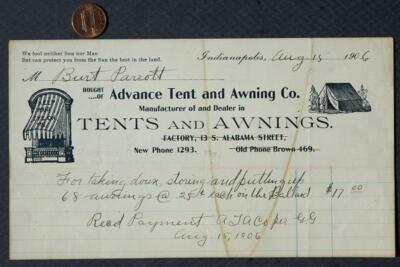 We fool neither Son nor Man
But can protect you from the Sun the best in the land.
Indianapolis, Aug 15 1906
M Burt Parrott
BOUGHT
....OF
Advance Tent and Awning Co.
Manufacturer of and Dealer in
TENTS AND AWNINGS.
FACTORY, 13 S. ALABAMA STREET,
New Phone 1293. Old Phone Brown 469.
For taking down, storing and putting up
68 awnings @ 25¢ each on the Ballard $17 00
Recd Payment A T A Co per G.G
Aug 15, 1906